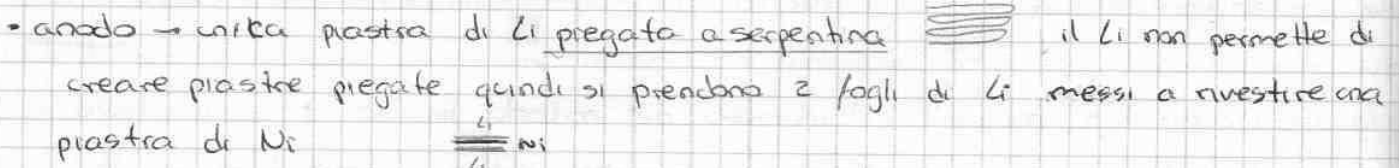 • anodo → unica piastra di Li piegata a serpentina il Li non permette di
creare piastre piegate quindi si prendono 2 fogli di Li messi a rivestire una
piastra di Ni Li Ni
Li